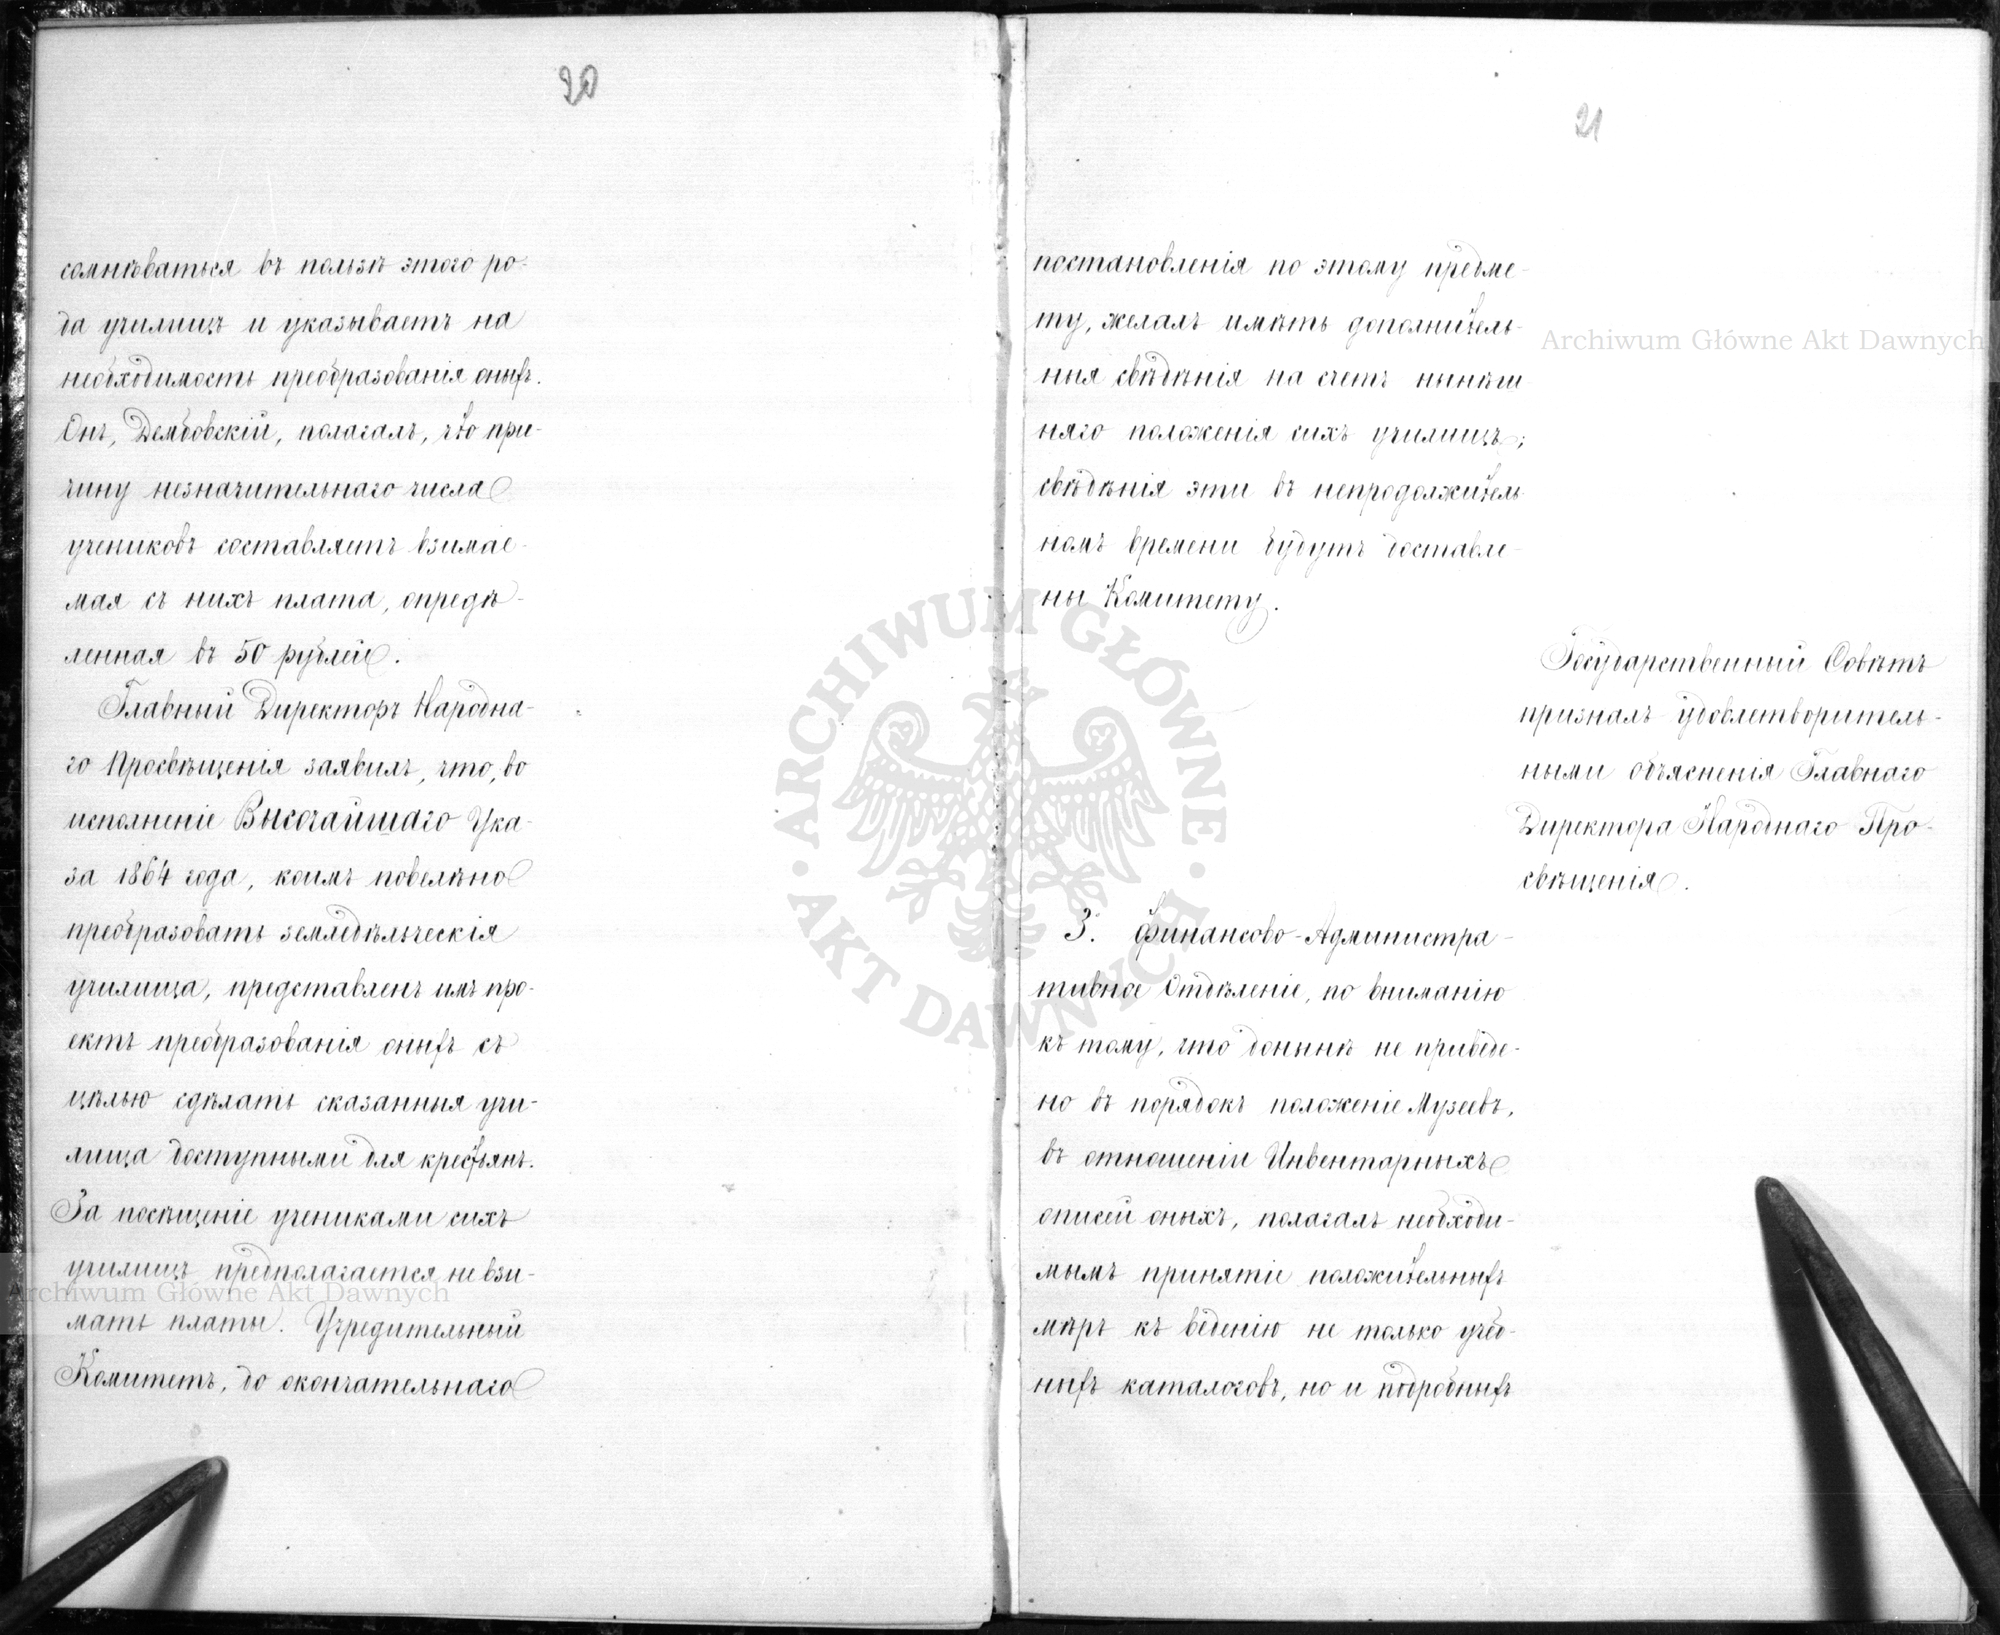 20
сомнѣваться въ пользѣ этого ро-
да училищъ и указываетъ на
необходимость преобразованія оныхъ.
Онъ, Дембовскій, полагалъ, что при-
чину незначительнаго числа
учениковъ составляетъ взимае-
мая съ нихъ плата, опредѣ-
ленная въ 50 рублей.
Главный Директоръ Народна-
го Просвѣщенія заявилъ, что, во
исполненіе Высочайшаго Ука-
за 1864 года, коимъ повелѣно
преобразовать земледѣльческія
училища, представленъ имъ про-
ектъ преобразованія оныхъ съ
цѣлью сдѣлать сказанныя учи-
лища доступными для крестьянъ.
За посѣщеніе учениками сихъ
училищъ предполагается не взи-
мать платы. Учредительный
Комитетъ, до окончательнаго
21
постановленія по этому предме-
ту, желалъ имѣть дополнитель-
ныя свѣдѣнія на счетъ нынѣш-
няго положенія сихъ училищъ;
свѣдѣнія эти въ непродолжитель-
номъ времени будутъ доставле-
ны Комитету.
Государственный Совѣтъ
призналъ удовлетворитель-
ными объясненія Главнаго
Директора Народнаго Про-
свѣщенія.
3. Финансово-Администра-
тивное Отдѣленіе, по вниманію
къ тому, что донынѣ не приведе-
но въ порядокъ положеніе Музеевъ,
въ отношеніи Инвентарныхъ
описей оныхъ, полагалъ необходи-
мымъ принятіе положительныхъ
мѣръ къ веденію не только учеб-
ныхъ каталоговъ, но и подробныхъ
Archiwum Główne Akt Dawnych
Archiwum Główne Akt Dawnych
ARCHIWUM GŁÓWNE AKT DAWNYCH